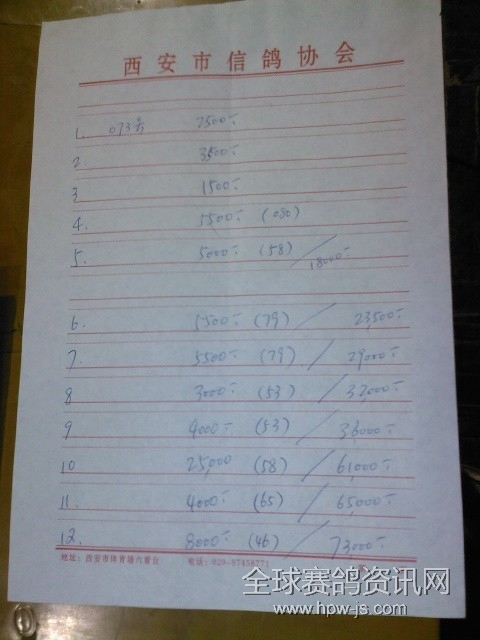 西安市信鸽协会
1. 073号 2500.-
2 3500.-
3 1500.-
4. 5500.- (080)
5. 5000.- (58) / 18000.-
6. 5500.- (79) / 23,500.-
7. 5500.- (79) / 29,000.-
8 3000.- (53) / 32,000.-
9 4000.- (53) / 36,000.-
10 25,000 (58) / 61,000.-
11. 4000.- (65) / 65,000.-
12. 8000.- (46) / 73,000.-
地址：西安市体育场六看台 电话：
全球赛鸽资讯网
http://www.hpw-js.com